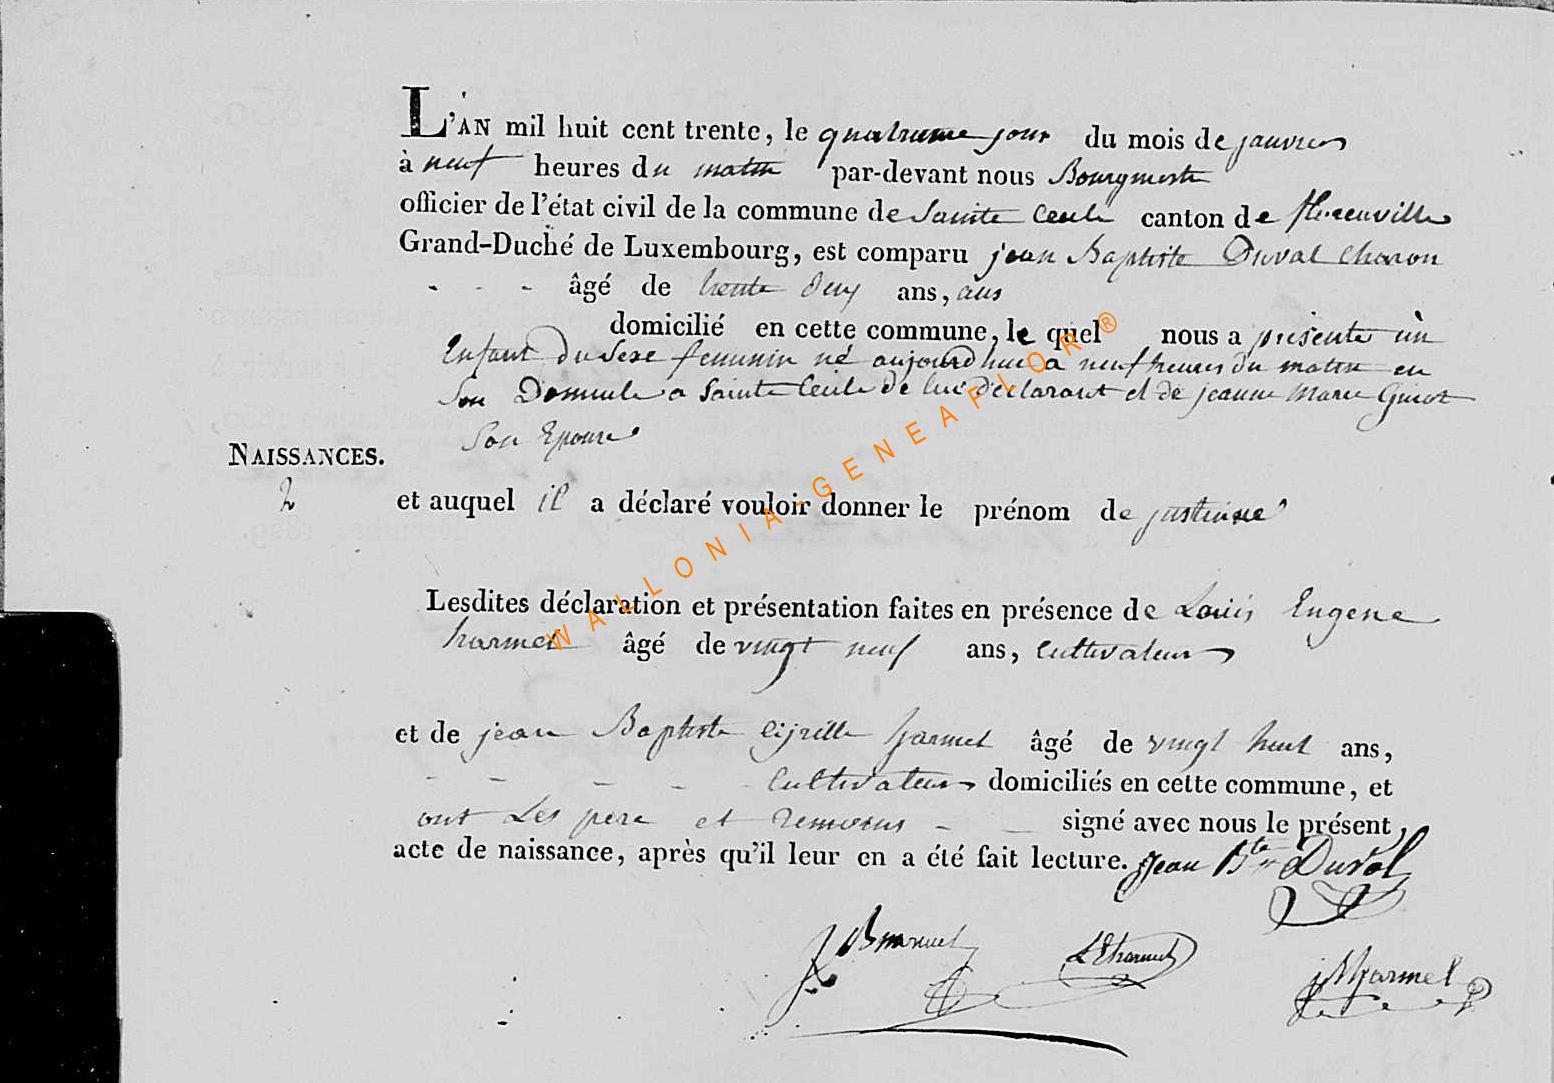 L'AN mil huit cent trente, le quatrieme jour du mois de janvier
à neuf heures du matin par-devant nous Bourgmestre
officier de l'état civil de la commune de Sainte Cecile canton de florenville
Grand-Duché de Luxembourg, est comparu jean Baptiste Duval charon
- - - âgé de trente deux ans, ans
domicilié en cette commune, le quel nous a présenté un
Enfant du Sexe feminin né aujourd hui a neuf heures du matin en
Son Domicile a Sainte Cecile de lui déclarant et de jeanne Marie Guiot
Son Epouse
NAISSANCES.
2
et auquel il a déclaré vouloir donner le prénom de justine
Lesdites déclaration et présentation faites en présence de Louis Eugene
harmel âgé de vingt neuf ans, cultivateur
et de jean Baptiste Cijrille harmel âgé de vingt huit ans,
- - - - - cultivateur domiciliés en cette commune, et
ont Les pere et temoins - - signé avec nous le présent
acte de naissance, après qu'il leur en a été fait lecture. Jean Bte Duval
LEharmel
jBharmel
WALLONIA-GENEAFLOR®